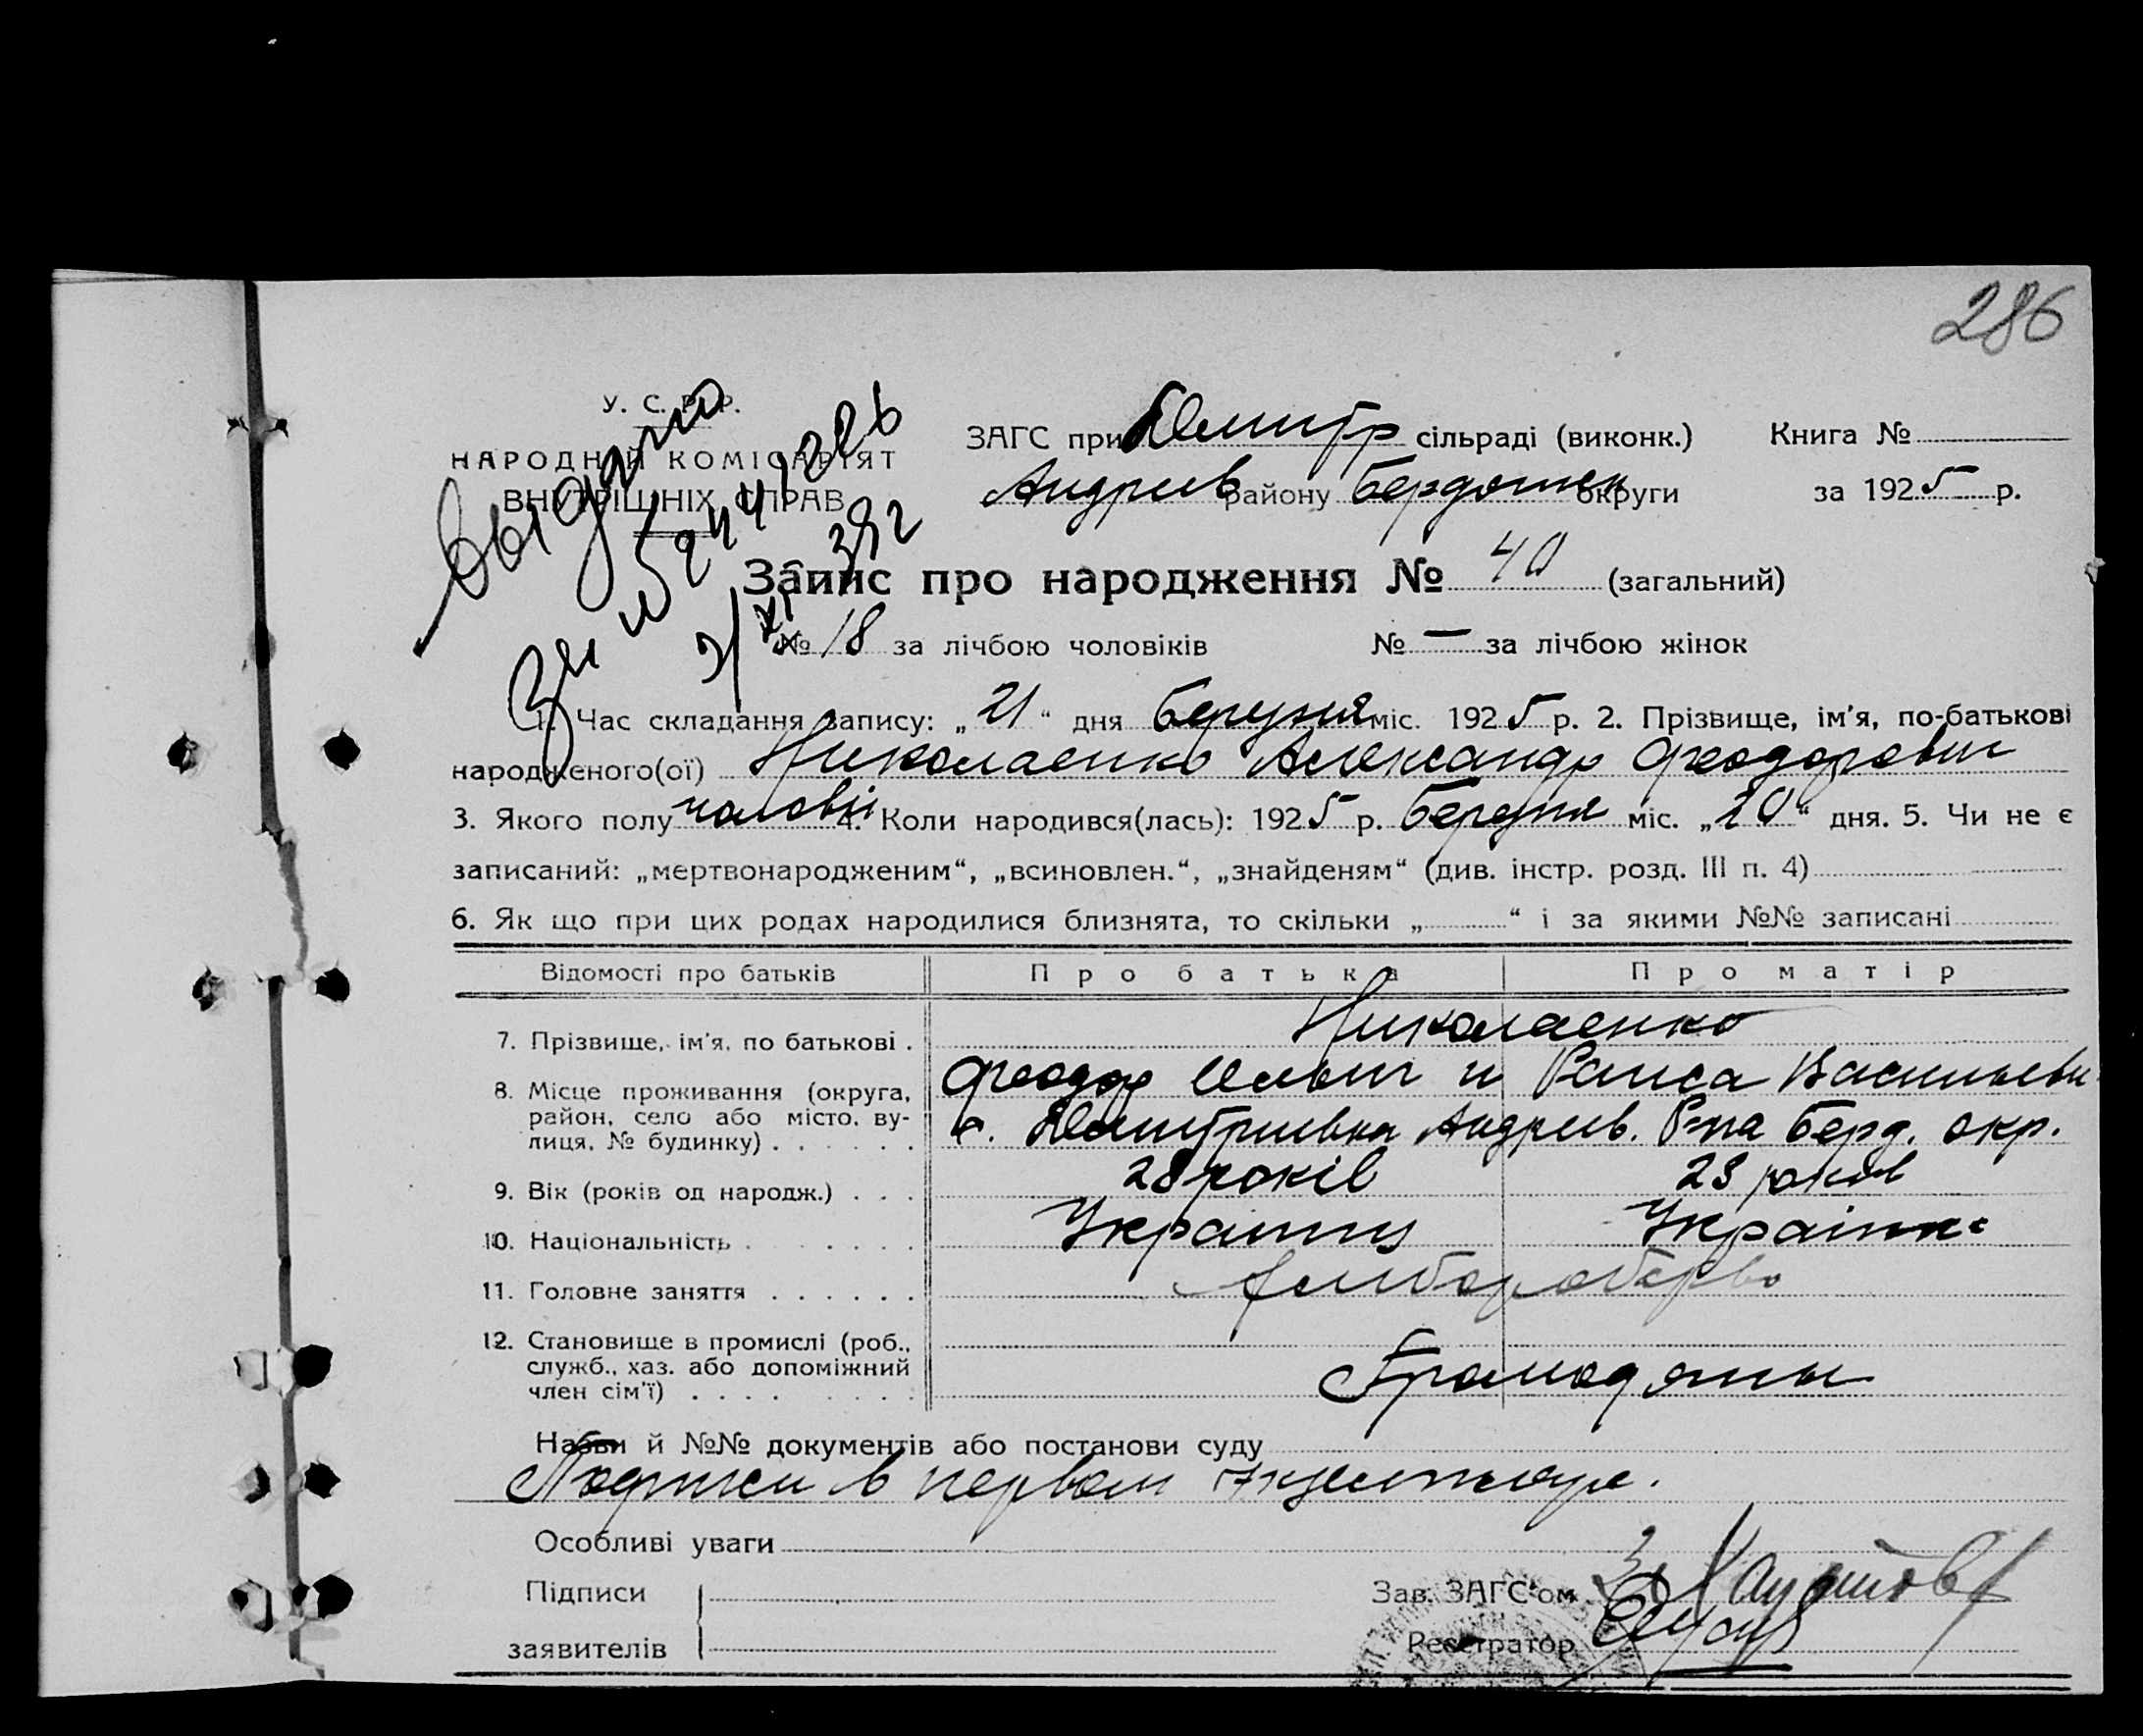 286
У. С. Р. Р.
НАРОДНІЙ КОМІСАРІЯТ
ВНУТРІШНІХ СПРАВ
Выдано
ЗАГС при Дмитр сільраді (виконк.) Книга №
Андріев району Бердянск округи за 1925 р.
Запис про народження № 40 (загальний)
№ 18 за лічбою чоловіків № — за лічбою жінок
1. Час складання запису: „21“ дня березня міс. 1925 р. 2. Прізвище, ім'я, по-батькові
народженого(ої) Николаенко Александр Феодорович
3. Якого полу чоловіч 4. Коли народився(лась): 1925 р. березня міс. „20“ дня. 5. Чи не є
записаний: „мертвонародженим“, „всиновлен.“, „знайденям“ (див. інстр. розд. III п. 4)
6. Як що при цих родах народилися близнята, то скільки „ “ і за якими №№ записані
Відомості про батьків Про батька Про матір
Николаенко
7. Прізвище, ім'я, по батькові .
Феодор Ильич и Раиса Васильевн
8. Місце проживання (округа,
район, село або місто, ву-
лиця, № будинку) . . . . . .
с. Дмитриевка Андреев. Р-на Берд. окр.
9. Вік (років од народж.) . . . 28 років 23 років
10. Національність . . . . . . . Украинц Украінк
11. Головне заняття . . . . . . хлиборобство
12. Становище в промислі (роб.,
служб., хаз. або допоміжний
член сім'ї) . . . . . . . .
Громодяны
Назви й №№ документів або постанови суду
Подписи в первом экземпляре.
Особливі уваги
Підписи Зав. ЗАГС'ом
заявителів Реєстратор